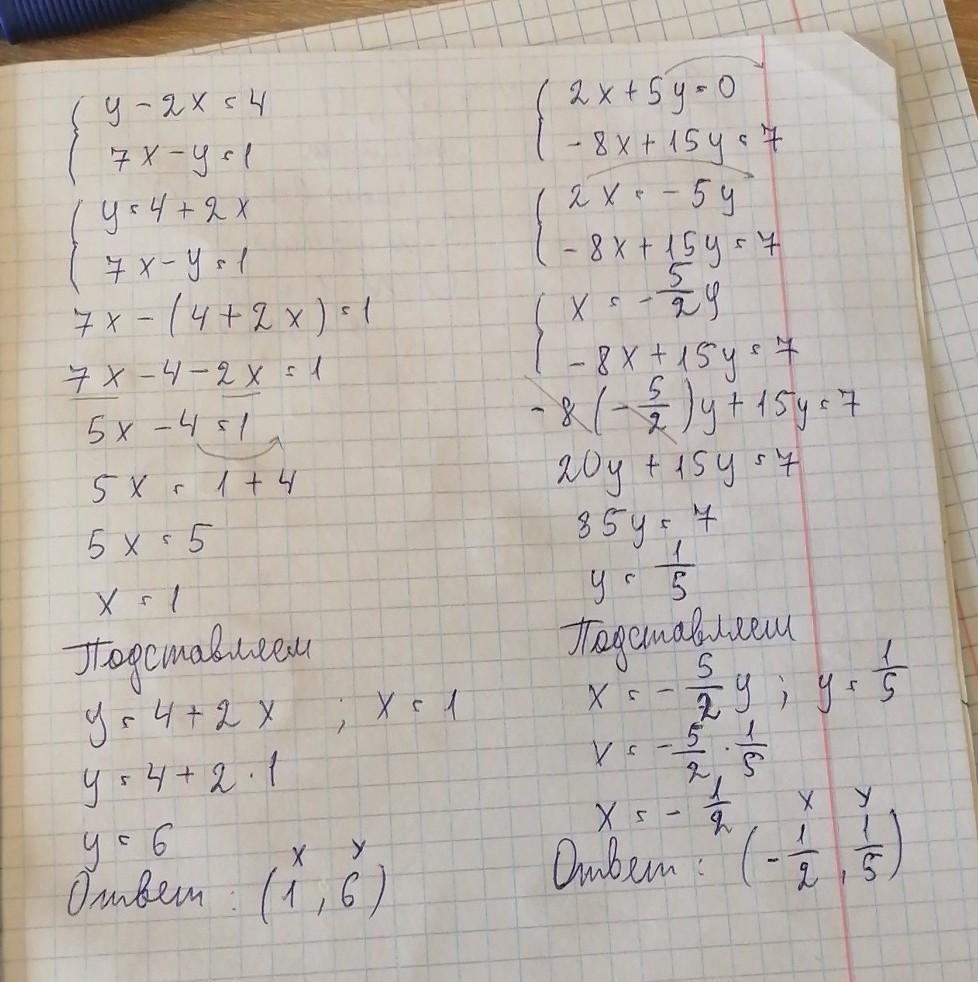 y - 2x = 4
7x - y = 1
y = 4 + 2x
7x - y = 1
7x - (4 + 2x) = 1
7x - 4 - 2x = 1
5x - 4 = 1
5x = 1 + 4
5x = 5
x = 1
Подставляем
y = 4 + 2x ; x = 1
y = 4 + 2 · 1
y = 6
x y
Ответ : (1 , 6)
2x + 5y = 0
-8x + 15y = 7
2x = -5y
-8x + 15y = 7
x = -5/2 y
-8x + 15y = 7
-8(-5/2)y + 15y = 7
20y + 15y = 7
35y = 7
y = 1/5
Подставляем
x = -5/2 y ; y = 1/5
x = -5/2 · 1/5
x = -1/2
x y
Ответ : (-1/2 , 1/5)